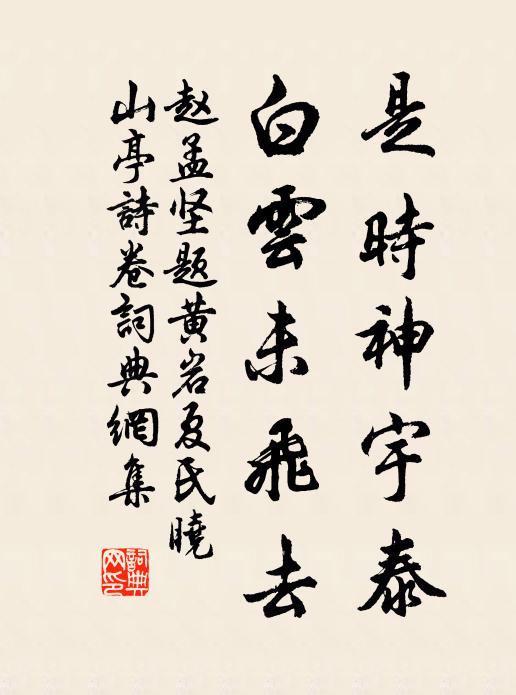 是時神宇泰
白雲未飛去
赵孟坚题黄岩夏氏曉
山亭詩卷詞典網集
詞典
网印